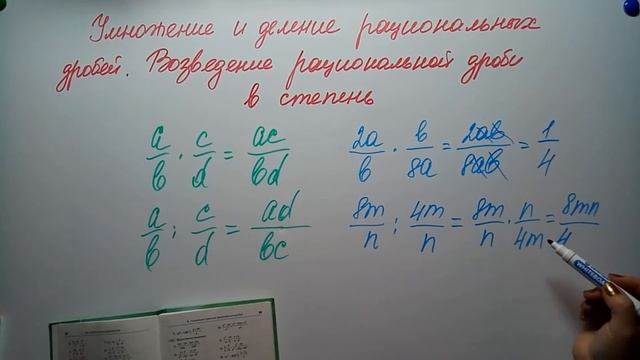 Умножение и деление рациональных
дробей. Возведение рациональной дроби
в степень
a/b · c/d = ac/bd
2a/b · b/8a = 2ab/8ab = 1/4
a/b : c/d = ad/bc
8m/n : 4m/n = 8m/n · n/4m = 8mn/4